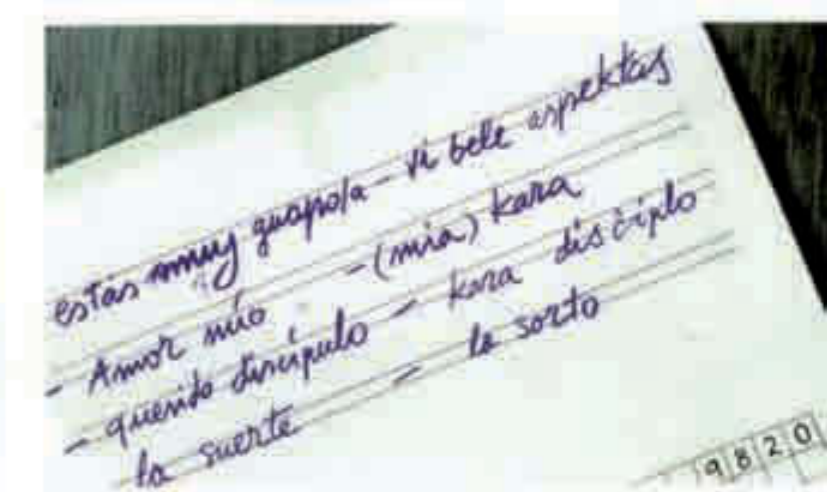 estás muy guapo/a - vi bele aspektas
- Amor mío - (mia) kara
- querido discípulo - kara disĉiplo
la suerte - la sorto
9820